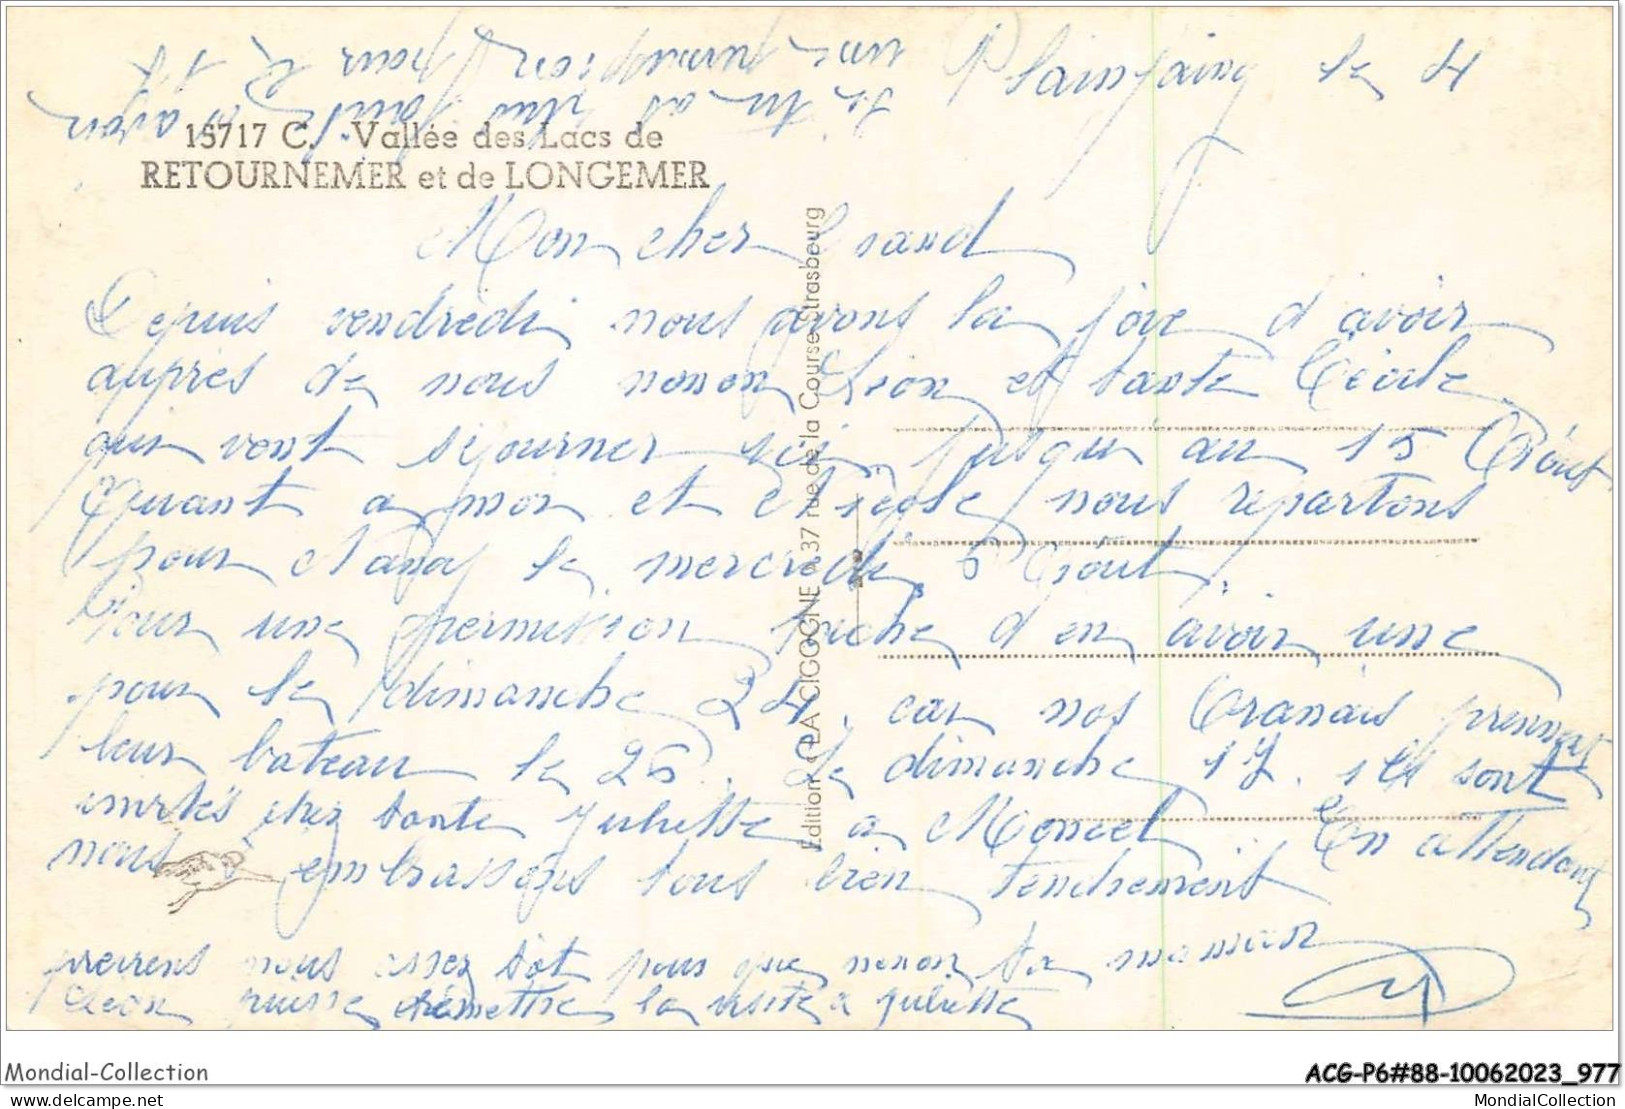 Plainfaing le 4
si tu as une permission pour le 17
15717 C. - Vallée des Lacs de
RETOURNEMER et de LONGEMER
Mon cher Grand
Depuis vendredi nous avons la joie d'avoir
auprès de nous nonon Léon et tante Cécile
qui vont séjourner ici jusqu'au 15 Août
Quant a moi et nous repartons
pour le mercredi 6 Août.
Pour une permission tache d'en avoir une
pour le dimanche 24, car nos Oranais prennent
leur bateau le 26. Le dimanche 17. ils sont
invités chez tante Juliette a Moncel. En attendant
nous t'embrassons tous bien tendrement
ta maman
préviens nous assez tôt pour que nonon
Léon puisse remettre la visite a Juliette
Edition "LA CICOGNE", 37 rue de la Course - Strasbourg
Mondial-Collection
ACG-P6#88-10062023_977
MondialCollection